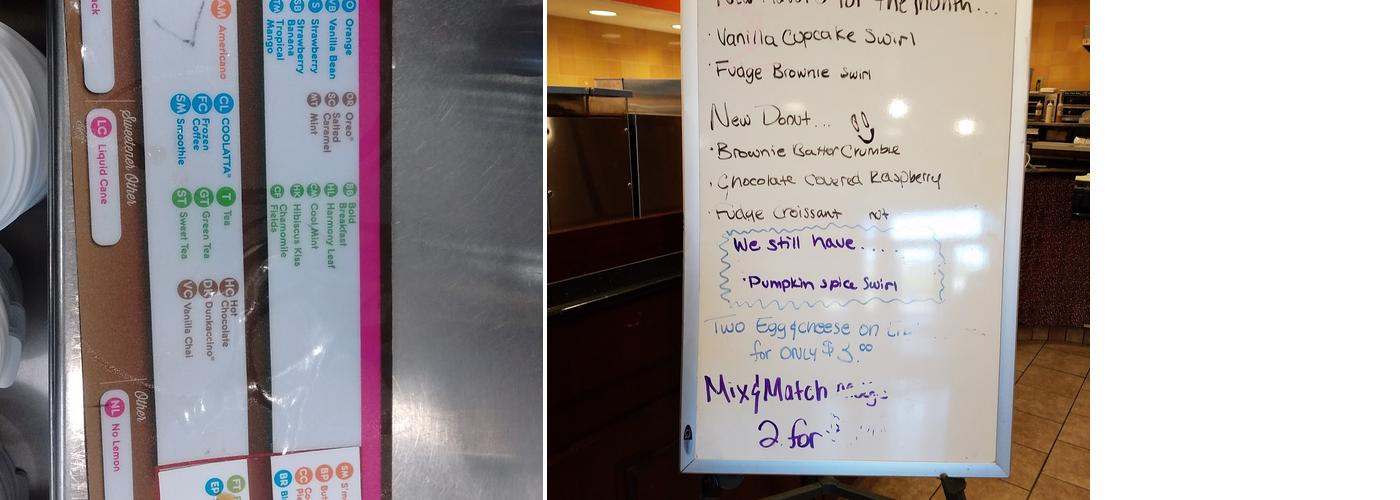 Orange
VB Vanilla Bean
S Strawberry
SB Strawberry
Banana
TM Tropical
Mango
OR Oreo®
SC Salted
Caramel
MT Mint
BB Bold
Breakfast
HL Harmony Leaf
CM Cool Mint
HK Hibiscus Kiss
CF Chamomile
Fields
AM Americano
CL COOLATTA®
FC Frozen
Coffee
SM Smoothie
T Tea
GT Green Tea
ST Sweet Tea
HC Hot
Chocolate
DK Dunkaccino®
VC Vanilla Chai
Sweetener Other
LC Liquid Cane
Other
NL No Lemon
SM S'm
BP But
CC
BR
FT
EP
New flavors for the month...
·Vanilla Cupcake Swirl
·Fudge Brownie Swirl
New Donut...
·Brownie Batter Crumble
·Chocolate Covered Raspberry
·Fudge Croissant not
We still have....
·Pumpkin spice Swirl
Two Egg & cheese on
for ONLY $3.00
Mix & Match
2 for